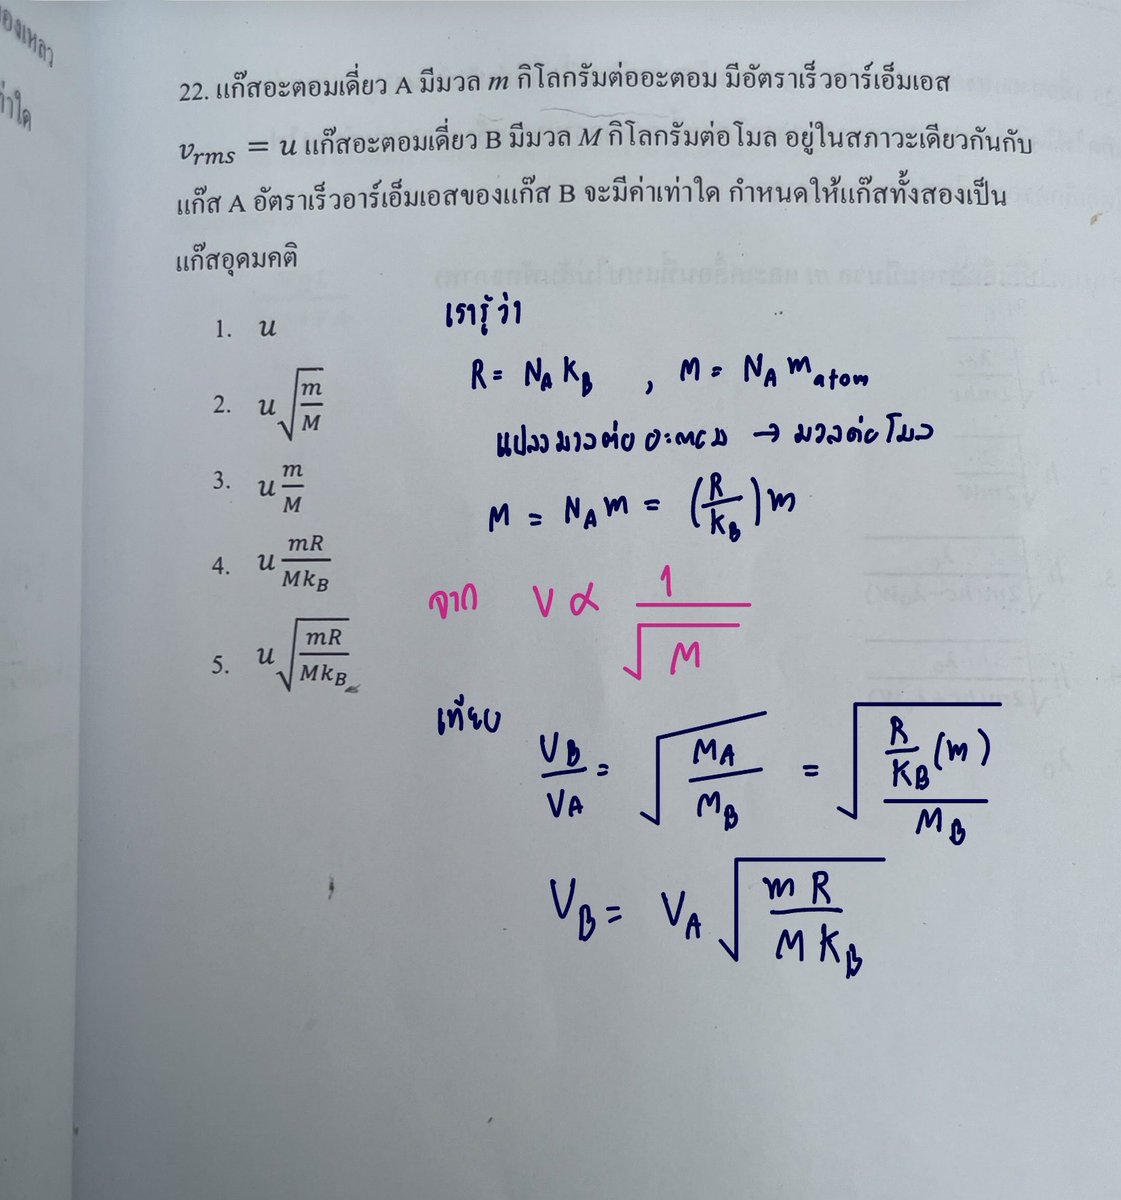 องเหลว
ท่าใด
22. แก๊สอะตอมเดี่ยว A มีมวล m กิโลกรัมต่ออะตอม มีอัตราเร็วอาร์เอ็มเอส
v_rms = u แก๊สอะตอมเดี่ยว B มีมวล M กิโลกรัมต่อโมล อยู่ในสภาวะเดียวกันกับ
แก๊ส A อัตราเร็วอาร์เอ็มเอสของแก๊ส B จะมีค่าเท่าใด กำหนดให้แก๊สทั้งสองเป็น
แก๊สอุดมคติ
1. u
2. u√(m/M)
3. u m/M
4. u mR/Mk_B
5. u√(mR/Mk_B)
เรารู้ว่า
R = N_A k_B , M = N_A m_atom
แปลงมวลต่ออะตอม → มวลต่อโมล
M = N_A m = (R/k_B)m
จาก V ∝ 1/√M
เทียบ
V_B/V_A = √(M_A/M_B) = √((R/k_B)(m)/M_B)
V_B = V_A √(mR/Mk_B)